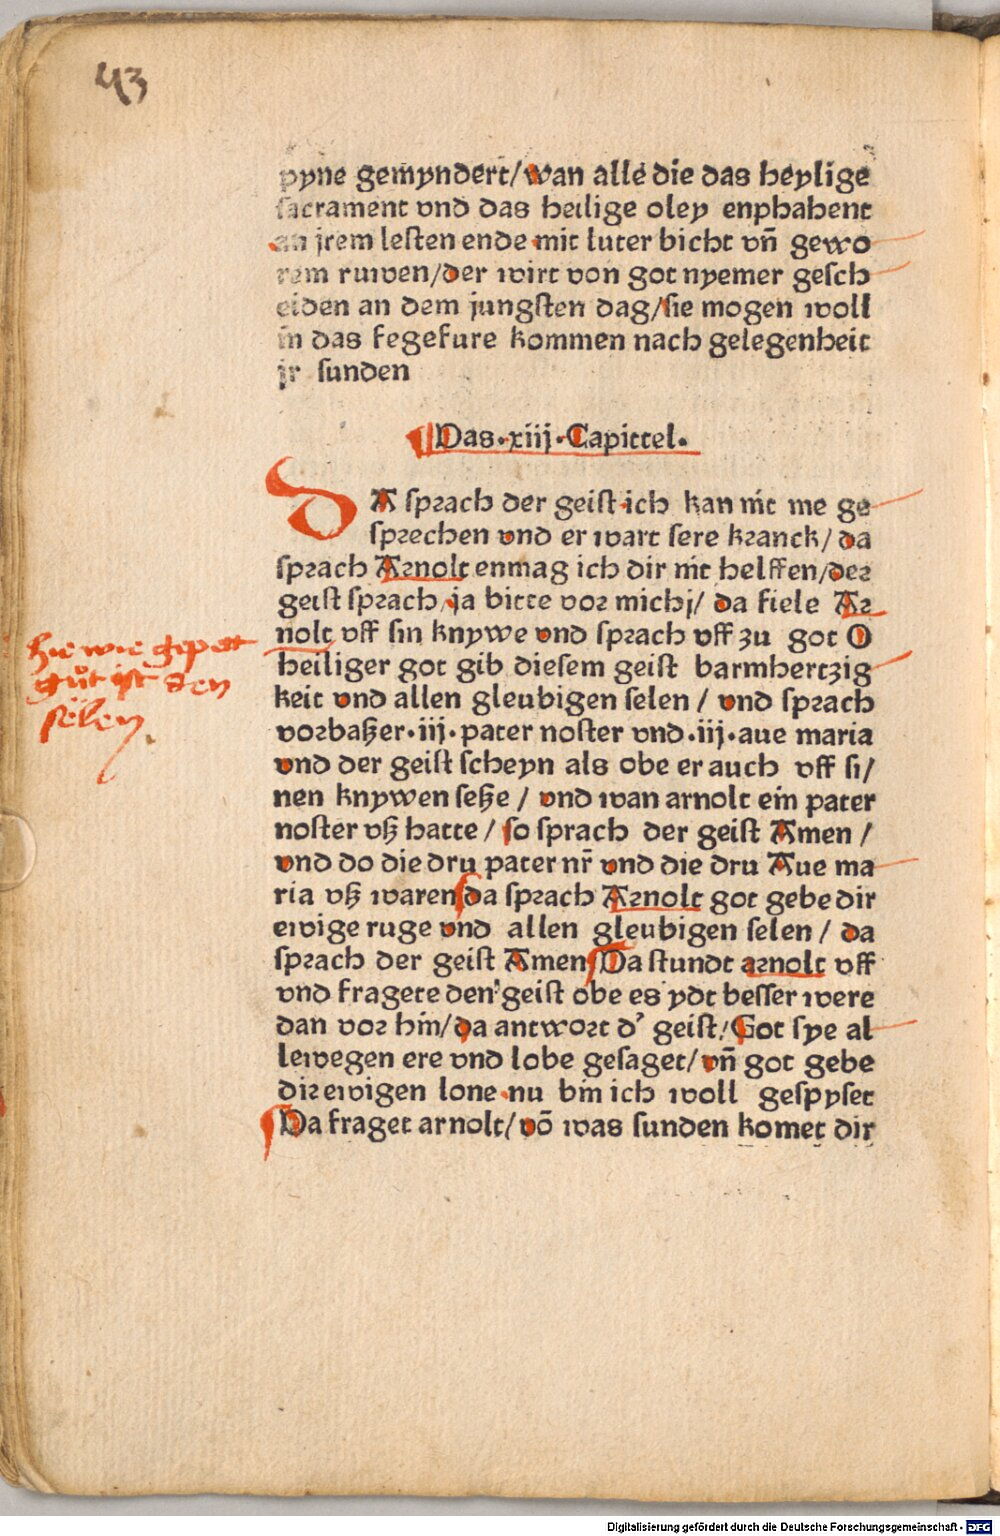 43
pyne gemyndert/wan alle die das heylige
sacrament vnd das heilige oley enphahent
an jrem lesten ende mit luter bicht vn̄ gewo
rem ruwen/der wirt von got nyemer gesch
eiden an dem jungsten dag/sie mogen woll
in das fegefure kommen nach gelegenheit
jr sunden
Das·xiij·Capittel·
DA sprach der geist ich kan nit me ge
sprechen vnd er wart sere kranck/da
sprach Arnolt enmag ich dir nit helffen/der
geist sprach ja bitte vor mich/ da fiele Ar
nolt vff sin knywe vnd sprach vff zu got O
heiliger got gib diesem geist barmhertzig
keit vnd allen gleubigen selen / vnd sprach
vorbaßer·iij·pater noster vnd·iij·aue maria
vnd der geist scheyn als obe er auch vff si/
nen knywen seße / vnd wan arnolt ein pater
noster vß hatte / so sprach der geist Amen /
vnd do die dru pater nr̄ vnd die dru Aue ma
ria vß waren da sprach Arnolt got gebe dir
ewige ruge vnd allen gleubigen selen / da
sprach der geist Amen Da stundt arnolt vff
vnd fragete den geist obe es ydt besser were
dan vor hin/da antwort d' geist/Got sye al
lewegen ere vnd lobe gesaget/vn̄ got gebe
dir ewigen lone nu bin ich woll gespyset
Da fraget arnolt/vō was sunden komet dir
hie wie gepett
gůt ist den
selen
Digitalisierung gefördert durch die Deutsche Forschungsgemeinschaft - DFG